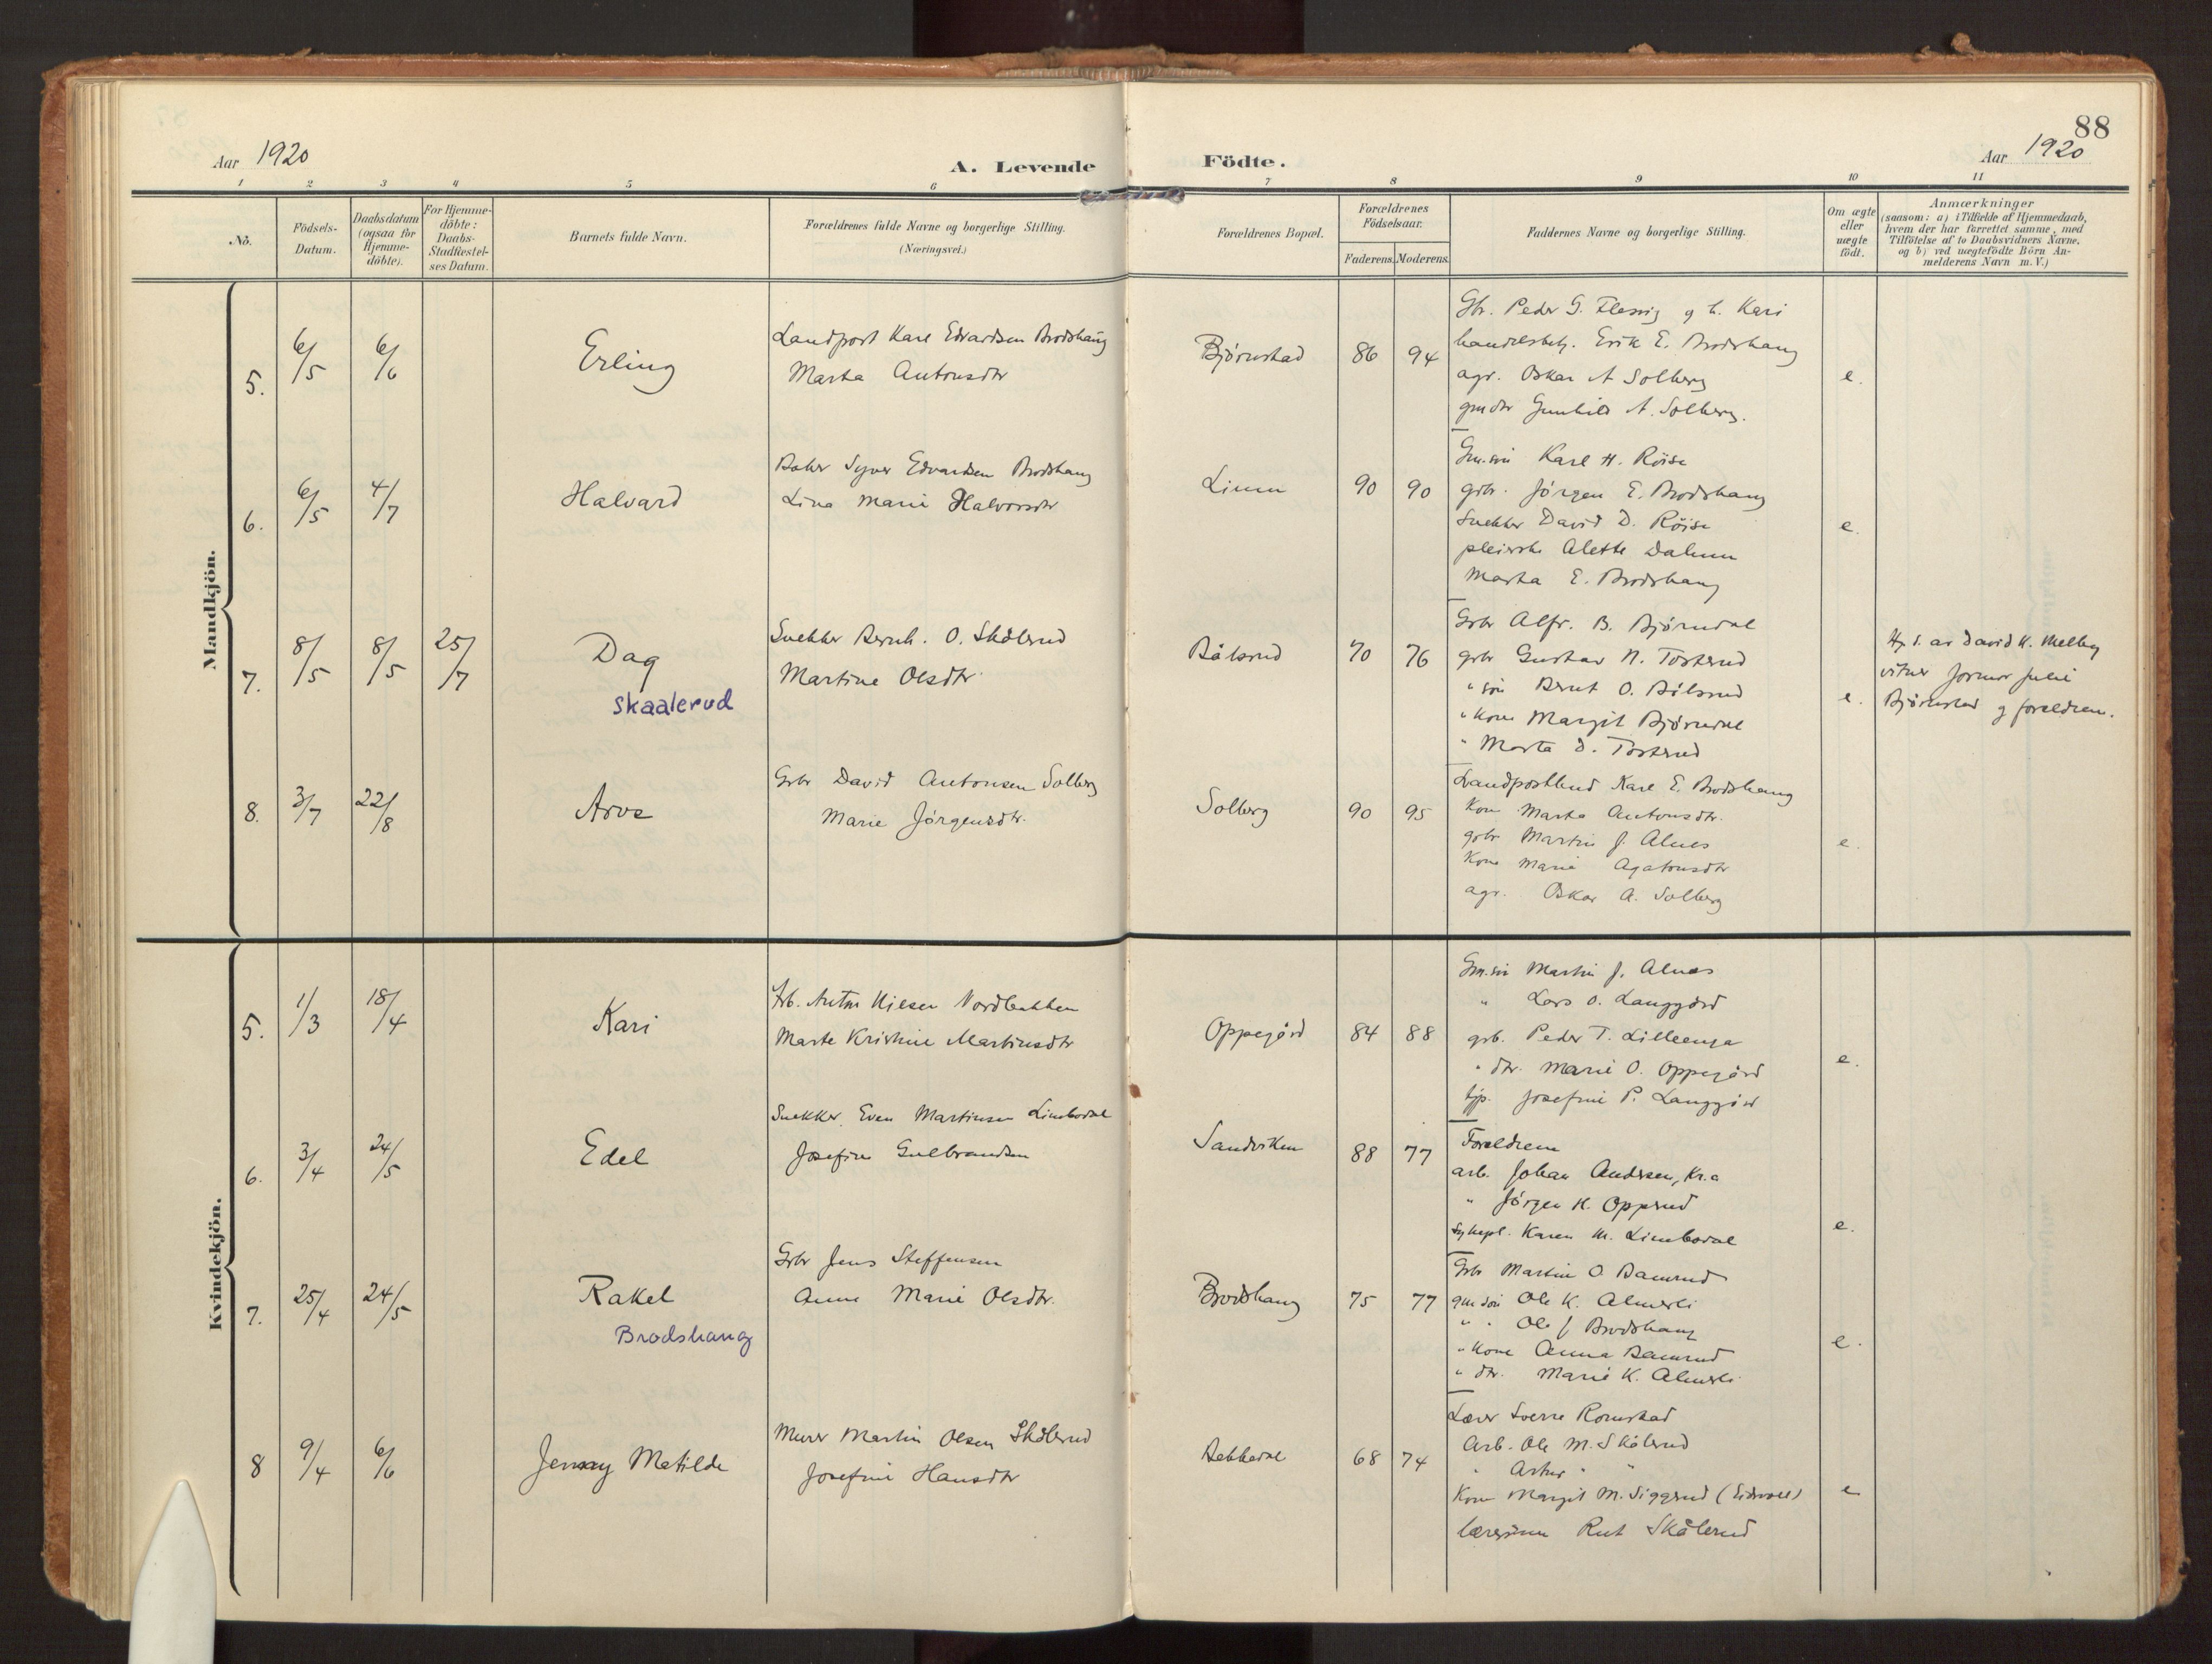 88
Aar 1920
A. Levende
Födte.
Aar 1920
1 2 3 4 5 6 7 8 9 10 11
No.
Födsels-
Datum.
Daabsdatum
(ogsaa for
Hjemme-
döbte).
For Hjemme-
döbte:
Daabs-
Stadfæstel-
ses Datum.
Barnets fulde Navn.
Forældrenes fulde Navne og borgerlige Stilling.
(Næringsvei.)
Forældrenes Bopæl.
Forældrenes
Födselsaar.
Faderens. Moderens.
Faddernes Navne og borgerlige Stilling.
Om ægte
eller
uægte
födt.
Anmærkninger
(saasom: a) i Tilfælde af Hjemmedaab,
hvem der har forrettet samme, med
Tilföielse af to Daabsvidners Navne,
og b) ved uægtefödte Börn An-
melderens Navn m. V.)
Mandkjön.
5. 6/5 6/6 Erling
Landpost Karl Edvardsen Brodshaug
Marta Antonsdtr
Bjørnstad 86 94
Gbr. Peder G. Flessig og h. Kari
handelsbetj. Erik E. Brodshaug
agr. Oskar A Solberg
gmdtr Gunhild A. Solberg.
e.
6. 6/5 4/7 Halvard
Baker Syver Edvardsen Brodshaug
Lina Marie Halvorsdtr
Linna 90 90
Gm.søn Karl H. Röise
gbr. Jörgen E. Brodshaug
Snekker David D. Röise
pleierske Alette Dalum
Marta E. Brodshaug
e.
7. 8/5 8/5 25/7 Dag
Skaalerud
Snekker Bernh. O. Skålerud
Martine Olsdtr
Bålsrud 70 76
Gbr Alfr. B. Bjørndal
gbr Gustav N. Tosterud
" søn Bernt O. Bålsrud
" kone Margit Bjørndal
" Marta D. Tosterud
e.
Hj. d. av David K. Melby
vitner formor Julie
Bjørnstad og foreldrene.
8. 3/7 22/8 Arve
Gbr David Antonsen Solberg
Marie Jørgensdtr.
Solberg 90 95
Landpostbud Karl E. Brodshaug
Kone Marta Antonsdtr.
gbr Martin J. Alnes
Kone Marie Agatonsdtr
agr. Oskar A. Solberg
e.
Kvindekjön.
5. 1/3 18/4 Kari
Frb. Anton Nilsen Nordbakken
Marte Kristine Martinsdtr
Oppegård 84 88
Gm.søn Martin J. Alnes
" Lars O. Langgård
grb. Peder T. Lilleenga
" dtr. Marie O. Oppegård
tjp. Josefine P. Langgård
e.
6. 3/4 24/5 Edel
Snekker Even Martinsen Limbodal
Josefine Gulbrandsen
Sandviken 88 77
Foreldrene
arb. Johan Andersen, Kr.a
" Jörgen H. Opperud
sykepl. Karen M. Limbodal
e.
7. 25/4 24/5 Rakel
Brodshaug
Gbr Jens Steffensen
Anne Marie Olsdtr.
Brodshaug 75 77
Gbr Martin O. Bamrud
gm søn Ole K. Almerli
" " Ole J Brodshaug
" kone Anna Bamrud
" dtr. Marie K. Almerli
e.
8 9/4 6/6 Jenny Matilde
Murer Martin Olsen Skålerud
Josefine Hansdtr
Bekkedal 68 74
Lærer Sverre Romstad
Arb. Ole M. Skålerud
" Artur " "
Kone Margit M. Siggerud (Eidsvoll)
lærerinne Rut Skålerud
e